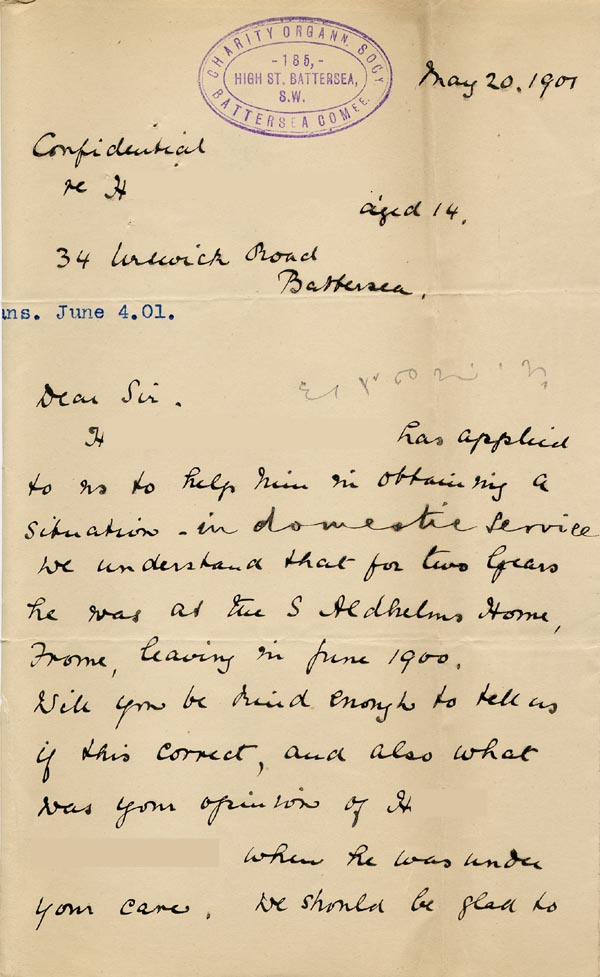 CHARITY ORGANN. SOCY
- 185, -
HIGH ST. BATTERSEA,
S.W.
BATTERSEA COMEE.
May 20. 1901
Confidential
re H
aged 14.
34 Urswick Road
Battersea.
ans. June 4.01.
Dear Sir.
H has applied
to us to help him in obtaining a
situation - in domestic service
We understand that for two years
he was at the S Aldhelms Home,
Frome, leaving in June 1900.
Will you be kind enough to tell us
if this correct, and also what
was your opinion of H
when he was under
your care. We should be glad to